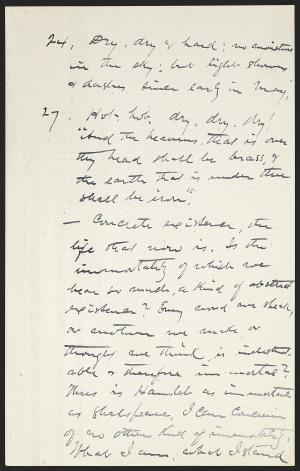 24, Dry, dry & hard; no moisture
in the sky; but light showers
& dashes, since early in May,
27. Hot, hot, dry, dry, dry!
"And the heavens, that is over
thy head shall be brass, &
the earth that is under thee
shall be iron."
— Concrete existence, the
life that now is. Is the
immortality of which we
hear so much, a kind of abstract
existence? Every word we speak,
or motion we make, or
thought we think, is indestruct-
able & therefore immortal?
Thus is Hamlet as immortal
as Shakspeare, I can conceive
of no other kind of immortality.
What I am, what I stand